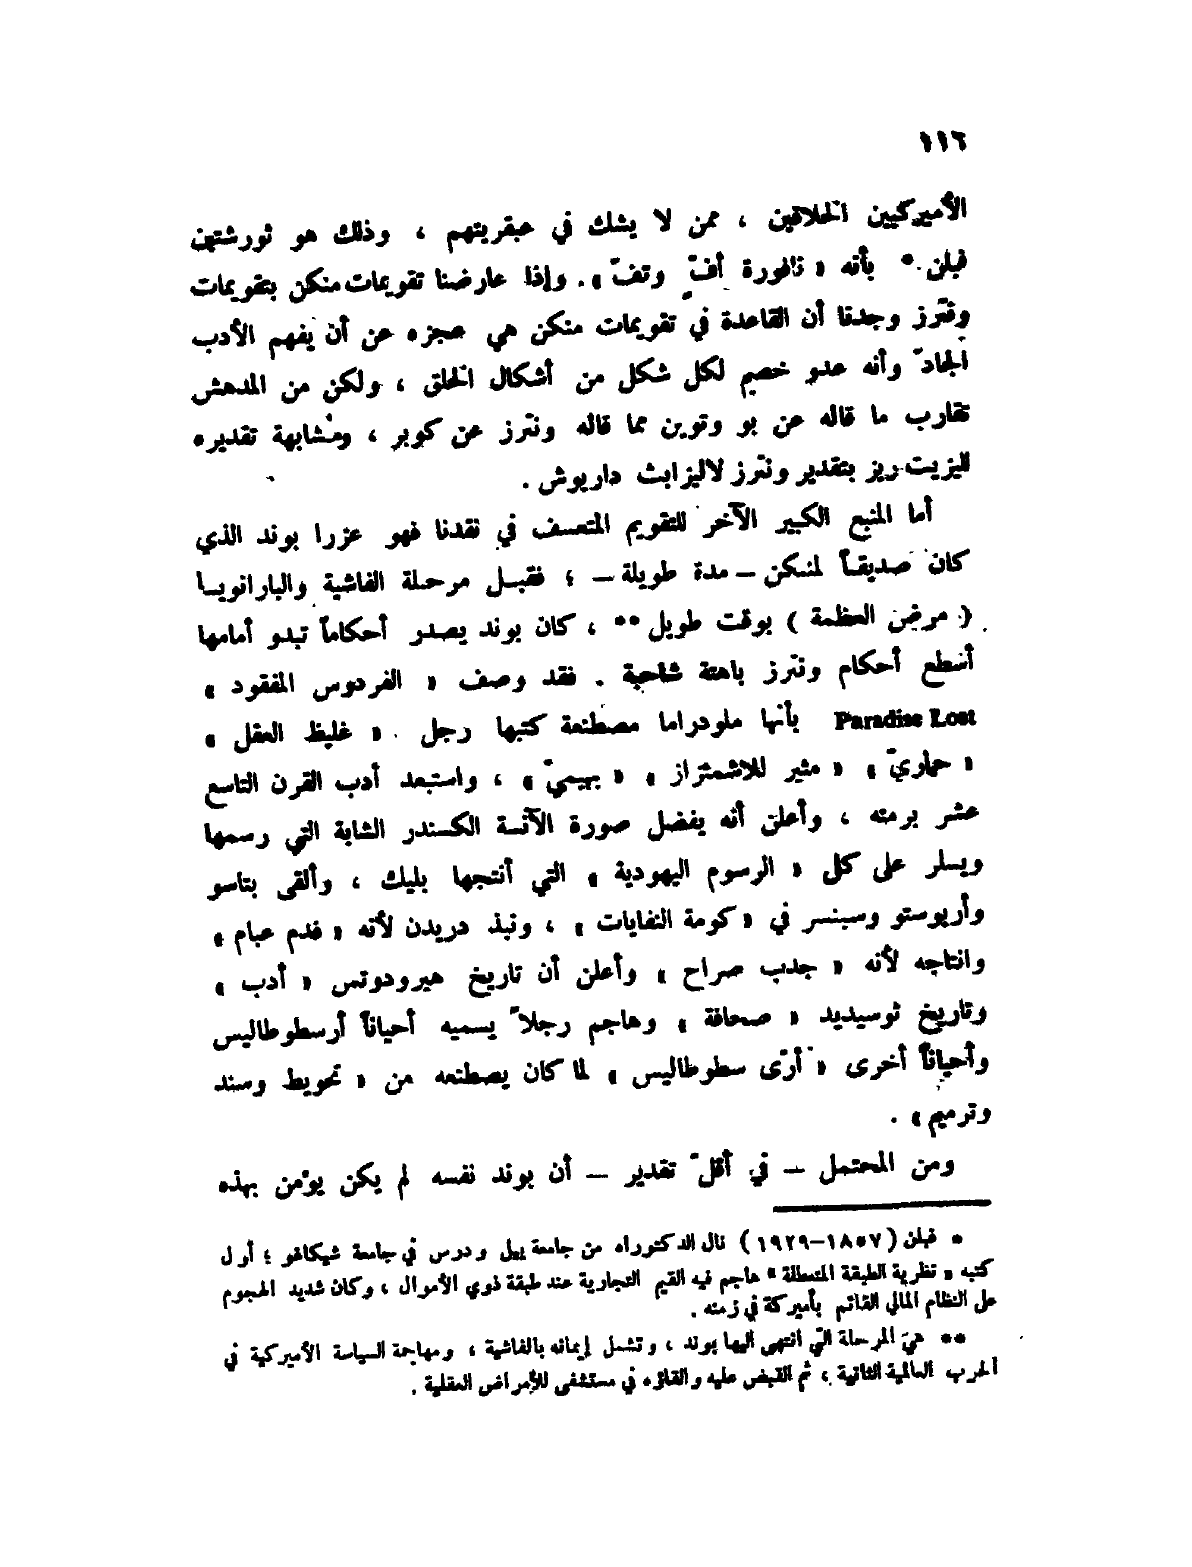 ١١٦
الأميركيين الخلاقين ، ممن لا يشك في عبقريتهم ، وذلك هو ثورشتين
ڤبلن * بأنه « نافورة أفّ وتفّ » . وإذا عارضنا تقويمات منكن بتقويمات
ونترز وجدنا أن القاعدة في تقويمات منكن هي عجزه عن أن يفهم الأدب
الجادّ وأنه عدو خصم لكل شكل من أشكال الخلق ، ولكن من المدهش
تقارب ما قاله عن بو وتوين مما قاله ونترز عن كوبر ، ومشابهة تقديره
لليزيت ريز بتقدير ونترز لاليزابث داريوش .
أما المنبع الكبير الآخر للتقويم المتعسف في نقدنا فهو عزرا بوند الذي
كان صديقاً لمنكن – مدة طويلة – ؛ فقبل مرحلة الفاشية والبارانويا
( مرض العظمة ) بوقت طويل ** ، كان بوند يصدر أحكاماً تبدو أمامها
أسطع أحكام ونترز باهتة شاحبة . فقد وصف « الفردوس المفقود »
Paradise Lost بأنها ملودراما مصطنعة كتبها رجل « غليظ العقل »
« حماريّ » « مثير للاشمئزاز » « بهيميّ » ، واستبعد أدب القرن التاسع
عشر برمته ، وأعلن أنه يفضل صورة الآنسة الكسندر الشابة التي رسمها
ويسلر على كل « الرسوم اليهودية » التي أنتجها بليك ، وألقى بتاسو
وأريوستو وسبنسر في « كومة النفايات » ، ونبذ دريدن لأنه « فدم عبام »
وانتاجه لأنه « جدب صراح » وأعلن أن تاريخ هيرودوتس « أدب »
وتاريخ ثوسيديد « صحافة » وهاجم رجلاً يسميه أحياناً أرسطوطاليس
وأحياناً أخرى « أرّى سطوطاليس » لما كان يصطنعه من « تحويط وسند
وترميم » .
ومن المحتمل – في أقلّ تقدير – أن بوند نفسه لم يكن يؤمن بهذه
* ڤبلن ( ١٨٥٧–١٩٢٩ ) نال الدكتوراه من جامعة ييل ودرس في جامعة شيكاغو ؛ أول
كتبه « نظرية الطبقة المتعطلة » هاجم فيه القيم التجارية عند طبقة ذوي الأموال ، وكان شديد الهجوم
على النظام المالي القائم بأميركة في زمنه .
** هي المرحلة التي انتهى اليها بوند ، وتشمل إيمانه بالفاشية ، ومهاجمة السياسة الأميركية في
الحرب العالمية الثانية ، ثم القبض عليه والقاؤه في مستشفى للأمراض العقلية .